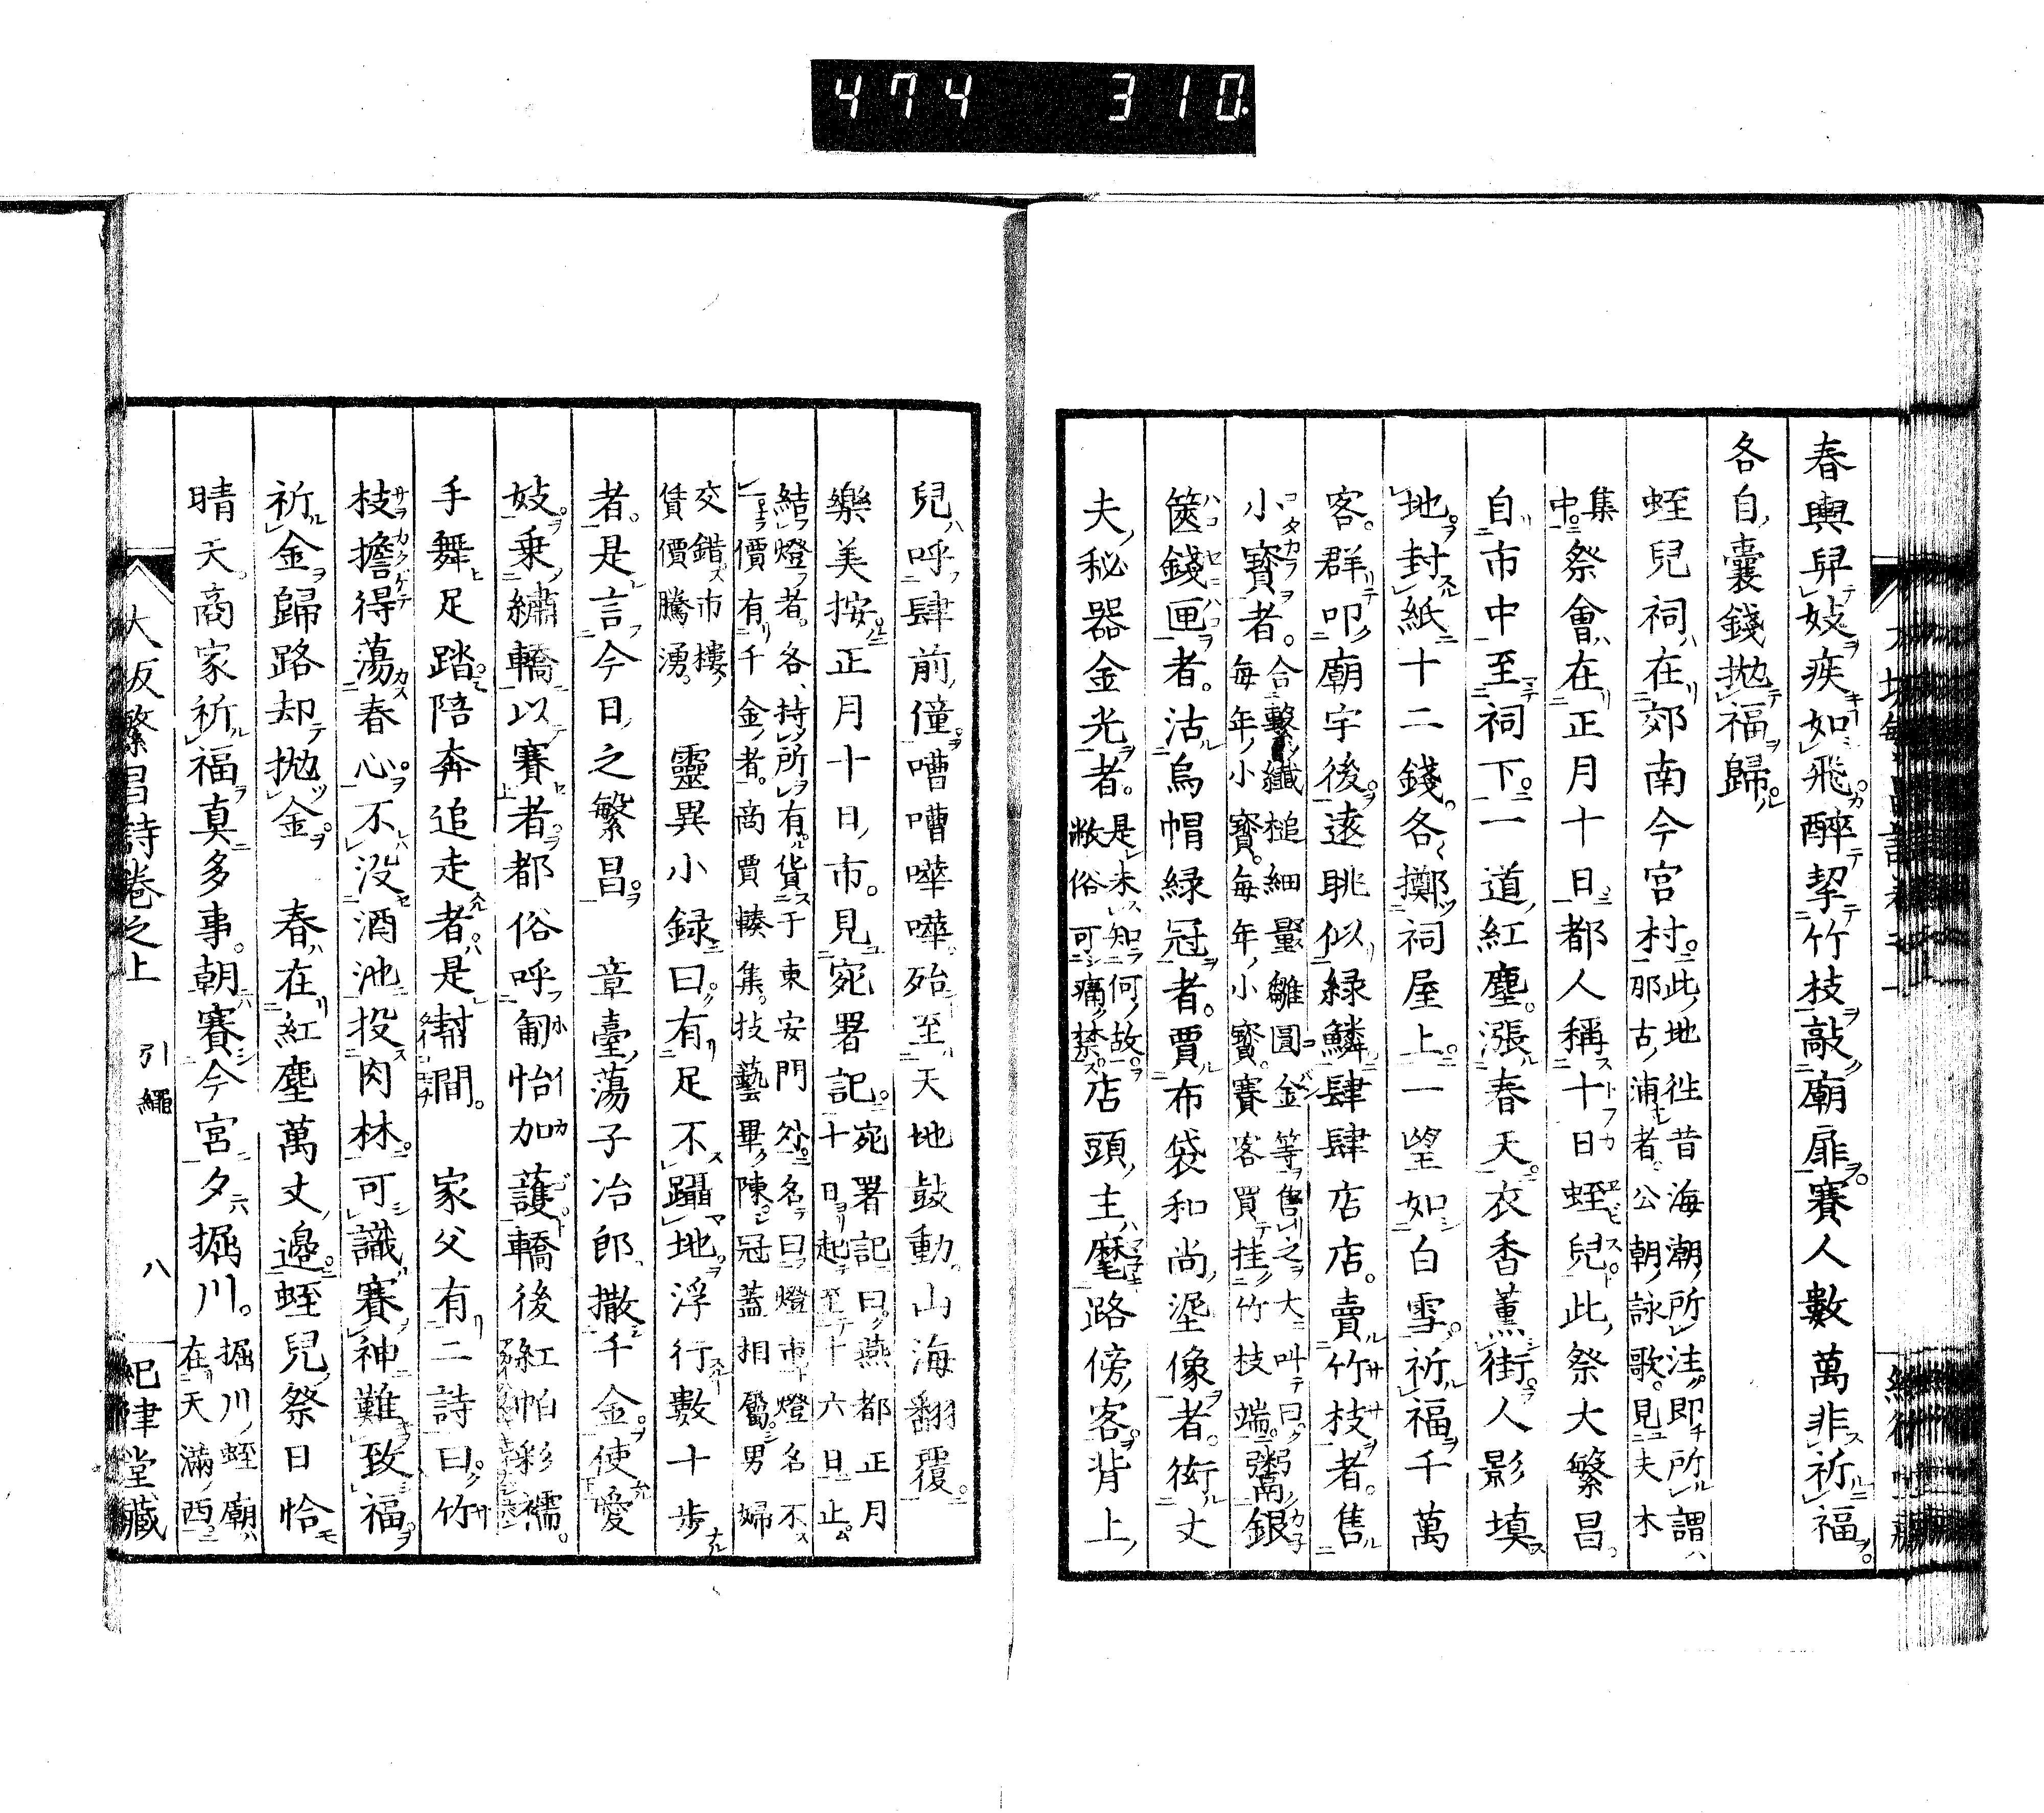 474 310
春輿舁妓疾如飛醉挈竹枝敲廟扉賽人數萬非祈福
各自囊錢拋福歸
蛭兒祠在郊南今宮村此地徃昔海潮所注即所謂
那古浦者公朝詠歌見夫木
集
中祭會在正月十日都人稱十日蛭兒此祭大繁昌
自市中至祠下一道紅塵漲春天衣香薰街人影填
地封紙十二錢各擲祠屋上一望如白雪祈福千萬
客群叩廟宇後遠眺似綠鱗肆肆店店賣竹枝者售
小寶者合繫纖槌細量雛圓金等售之大叫曰
每年小寶每年小寶賽客買挂竹枝端粥銀
篋錢匣者沽烏帽綠冠者賈布袋和尚埿像者衒丈
夫秘器金光者是未知何故
敝俗可痛禁店頭主麾路傍客背上
兒呼肆前僮嘈嘈嘩嘩殆至天地鼓動山海翻覆
樂美按正月十日市見宛署記宛署記曰燕都正月
十日起至十六日止
結燈者各持所有貨于東安門外名曰燈市燈名不
一價有千金者商賈輳集技藝畢陳冠蓋相屬男婦
交錯市樓
賃價騰湧 靈異小録曰有足不躡地浮行數十步
者是言今日之繁昌 章臺蕩子冶郎撒千金使愛
妓乘繡轎以賽者都俗呼匍怡加護轎後紅帕彩襦
手舞足踏陪奔追走者是幇閒 家父有二詩曰竹
枝擔得蕩春心不沒酒池投肉林可識賽神難致福
祈金歸路却拋金 春在紅塵萬丈邊蛭兒祭日恰
晴天商家祈福真多事朝賽今宮夕掘川掘川蛭廟
在天滿西
大坂繁昌詩卷之上 引繩 八 紀律堂藏